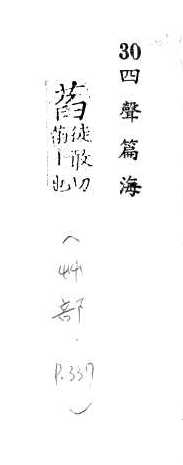 30四聲篇海
萏徒敢切
菡丨也
（艸部.P.337）